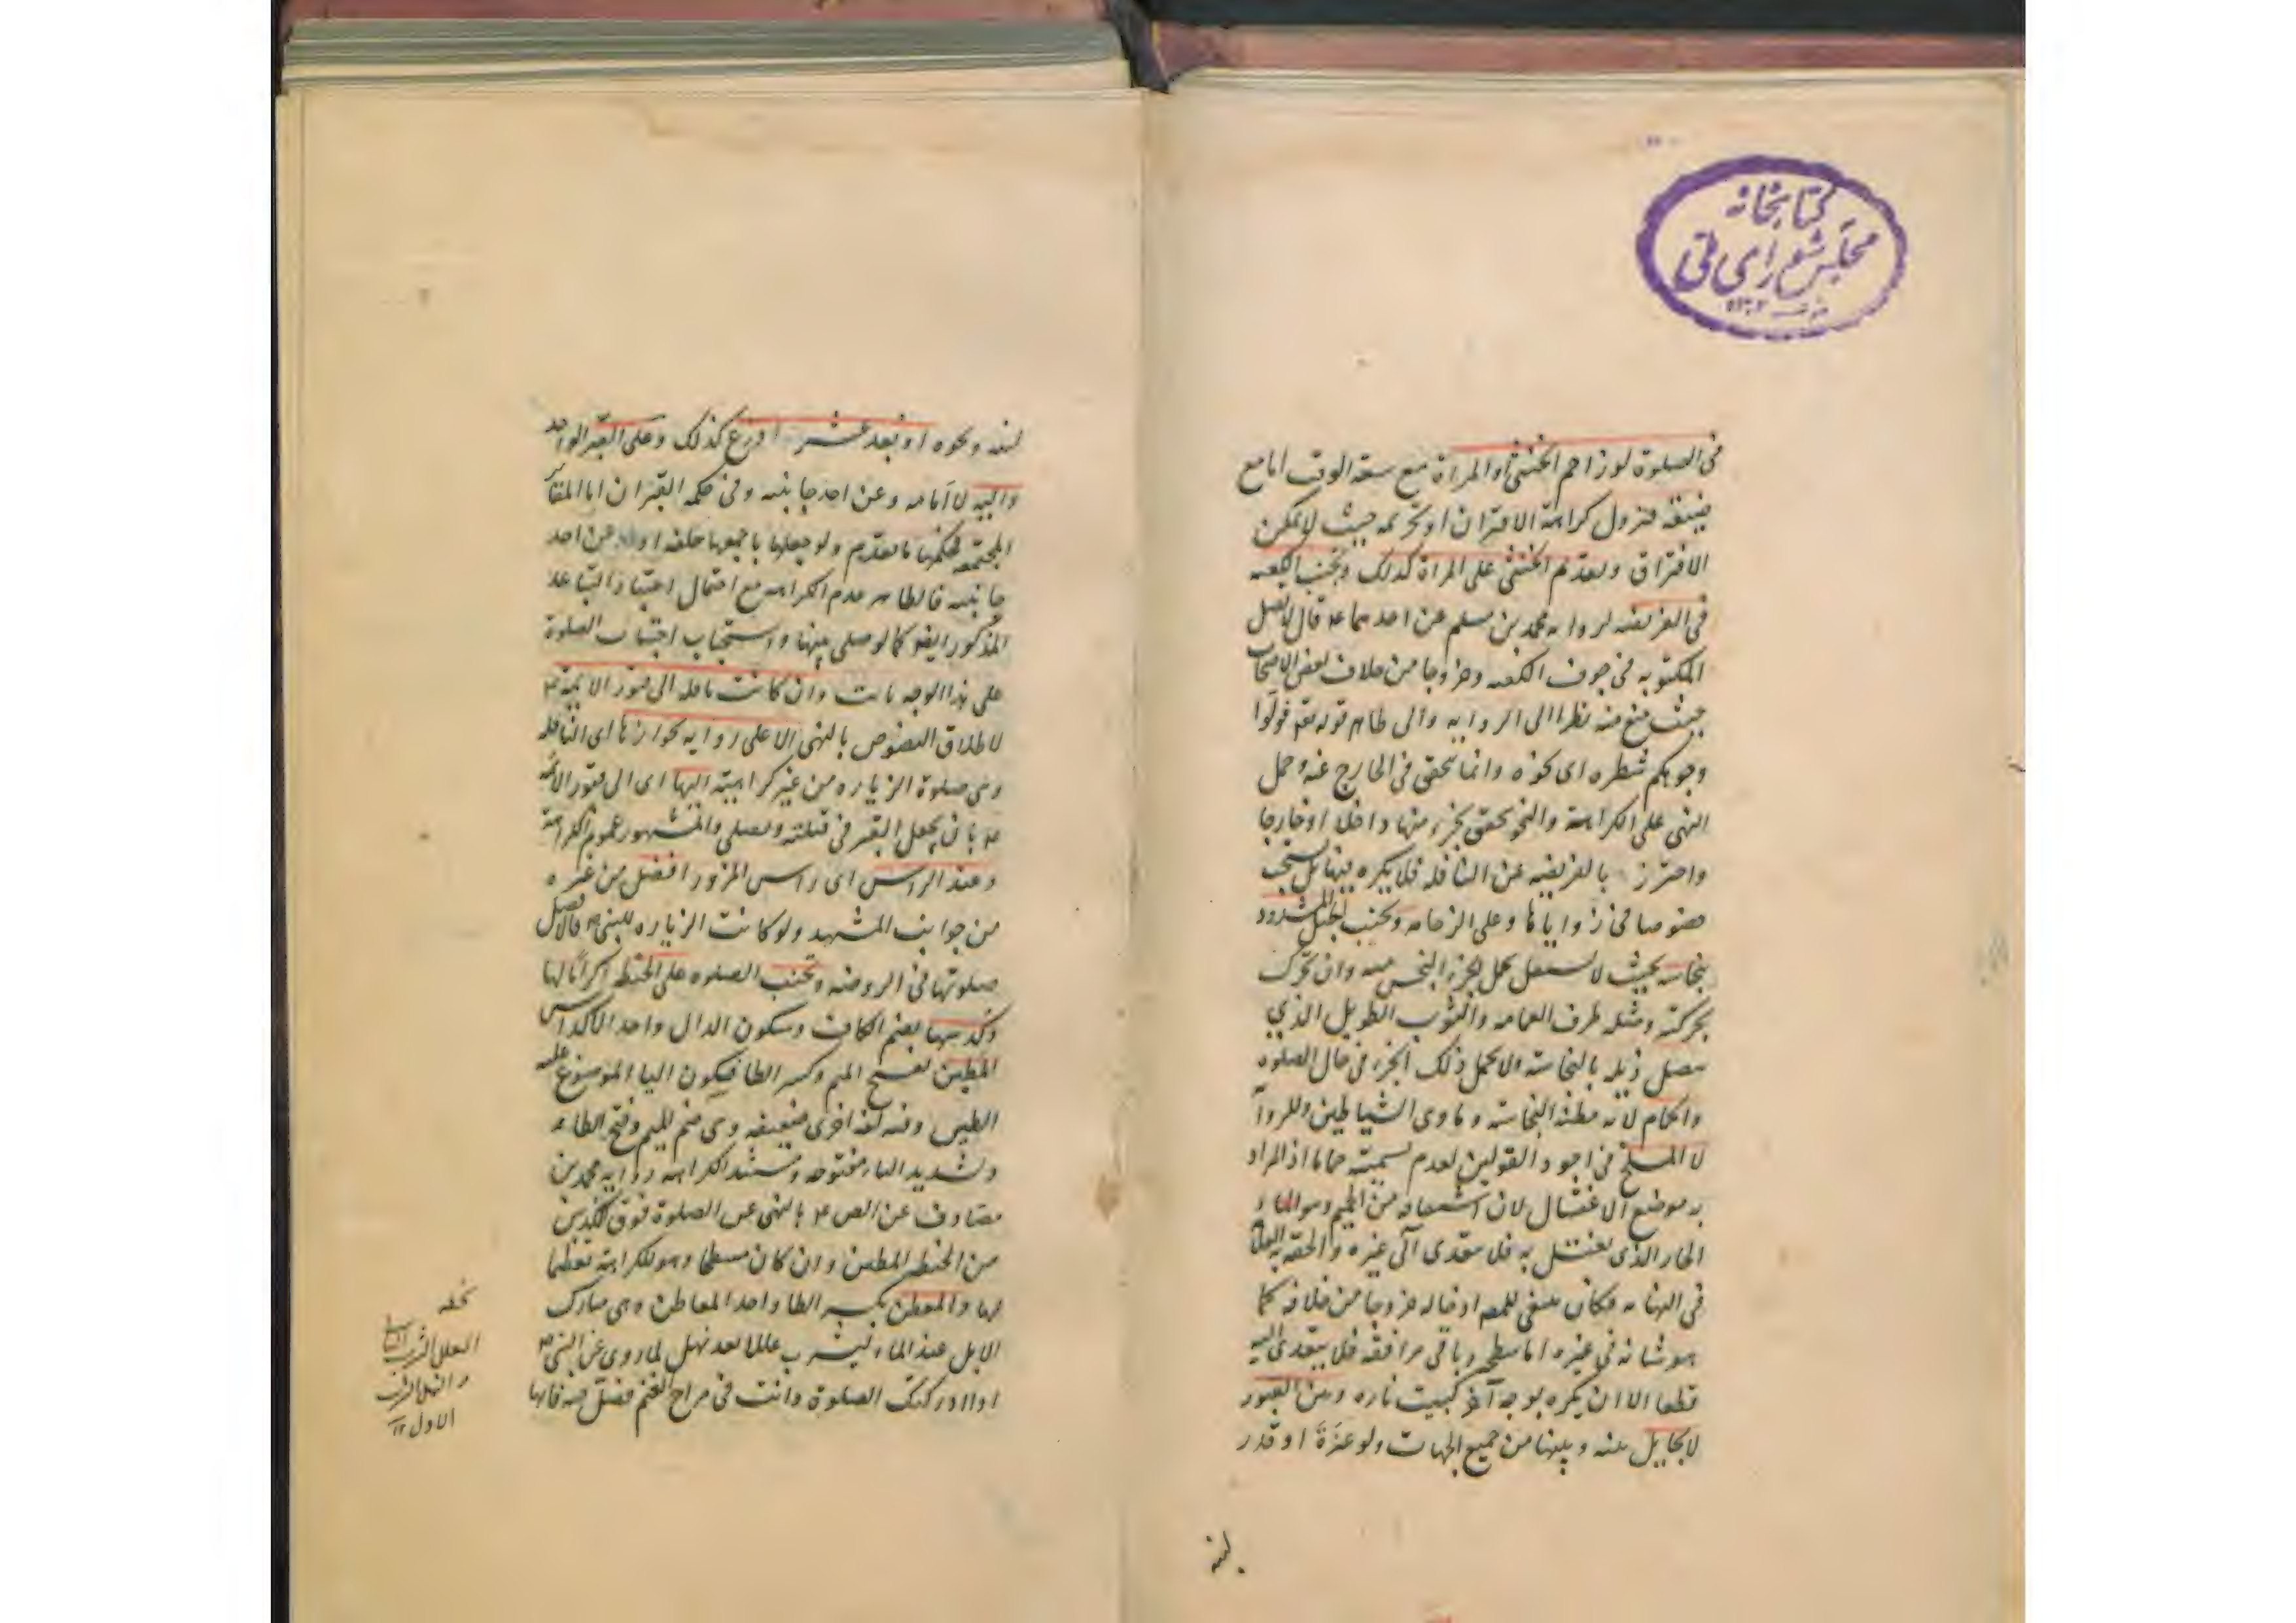 كتابخانه
مجلس شورای ملی
فى الصلوة لو زاحم الخنثى او المراة مع سعة الوقت اما مع
ضيقه فتزول كراهة الاقتران او تحريمه حيث لا يمكن
الافتراق ويقدم الخنثى على المراة كذلك وتجنب الكعبه
فى الفريضه لروايه محمد بن مسلم عن احدهما ع قال لا تصل
المكتوبه فى جوف الكعبه وخروجا من خلاف بعض الاصحاب
حيث منع منه نظرا الى الروايه والى ظاهر قوله تع فولوا
وجوهكم شطره اى نحوه وانما يتحقق فى الخارج عنه وحمل
النهى على الكراهة والنحو يتحقق بجزء منها داخلا او خارجا
واحترز بالفريضه عن النافله فلا يكره فيها بل تستحب
خصوصا فى زواياها وعلى الرخامه وتجنب الحبل المشدود
بنجاسه بحيث لا يستقل بحمل الجزء النجس منه وان تحرك
بحركته ومثله طرف العمامه والثوب الطويل الذي
يتصل ذيله بالنجاسه ولا يحمل ذلك الجزء فى حال الصلوه
والحمام لانه مظنه النجاسه وماوى الشياطين وللروا
لا المسلخ فى اجود القولين لعدم تسميته حماما اذ المراد
به موضع الاغتسال لان اشتقاقه من الحميم وهو الماء
الحار الذى يغتسل به فلا يتعدى الى غيره والحقه به العلامة
فى النهايه فكان ينبغى للمصه ادخاله خروجا من خلافه كما
هو شانه فى غيره اما سطحه وباقى مرافقه فلا يتعدى اليه
قطعا الا ان يكره بوجه آخر كبيت ناره وبين القبور
لا بحايل بينه وبينها من جميع الجهات ولو عنزة او قدر
لبنه
لبنه ونحوه او بعد عشر اذرع كذلك وعلى القبر الواحد
واليه لا امامه وعن احد جانبيه وفى حكمه القبران اما المقابر
المجتمعه فحكمها ما تقدم ولو جعلها باجمعها خلفه او عن احد
جانبيه فالظاهر عدم الكراهه مع احتمال اعتبار التباعد
المذكور ايضو كما لو صلى بينها واستحباب اجتناب الصلوة
على هذا الوجه ثابت وان كانت نافله الى قبور الائمة ع
لاطلاق النصوص بالنهى الا على روايه بجوازها اى النافله
وهى صلوة الزياره من غير كراهيته اليها اى الى قبور الائمه
ع بان يجعل القبر فى قبلته ويصلى والمشهور عموم الكراهة
وعند الراس اى راس المزور افضل من غيره
من جوانب المشهد ولو كانت الزياره للنبى ص فالافضل
صلوتها فى الروضه وتجنب الصلوه على الحنطه اكراما لها
وكدسها بضم الكاف وسكون الدال واحد الاكداس
المطين بفتح الميم وكسر الطا فسكون اليا الموضوع عليه
الطين وفيه لغة اخرى ضعيفه وهى ضم الميم وفتح الطاء
وتشديد الياء مفتوحه ومستند الكراهه روايه محمد بن
مضارف عن الص ع بالنهى عن الصلوة فوق كدس
من الحنطه المطين وان كان مسطحا وهو للكراهة تعظيما
لها والمعطن بكسر الطا واحد المعاطن وهى مبارك
الابل عند الماء لتشرب عللا بعد نهل لما روى عن النبى ص
اذا ادركتك الصلوة وانت فى مراح الغنم فصل فيه فانها
العلل الشرب الثانى
والنهل الشرب
الاول ١٢